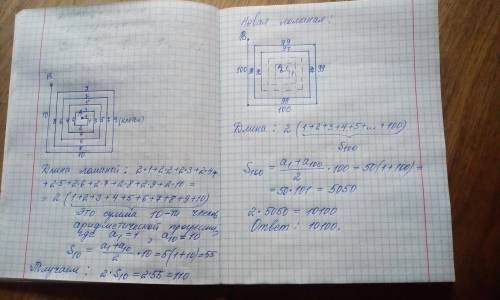 B
9
7
5
3
A
10 8 6 4 2 1 3 5 7 9 (клеток)
10
Длина ломаной: 2·1+2·2+2·3+2·4+
+2·5+2·6+2·7+2·8+2·9+2·10 =
= 2(1+2+3+4+5+6+7+8+9+10)
Это сумма 10-ти член.
арифметической прогрессии,
где a₁=1, a₁₀=10
S₁₀ = (a₁+a₁₀)/2 · 10 = 5(1+10) = 55
Получаем: 2·S₁₀ = 2·55 = 110
Новая ломаная:
B
99
97
100
A
98
100
Длина: 2(1+2+3+4+5+...+100)
S₁₀₀
S₁₀₀ = (a₁+a₁₀₀)/2 · 100 = 50(1+100) =
= 50·101 = 5050
2·5050 = 10100
Ответ: 10100.